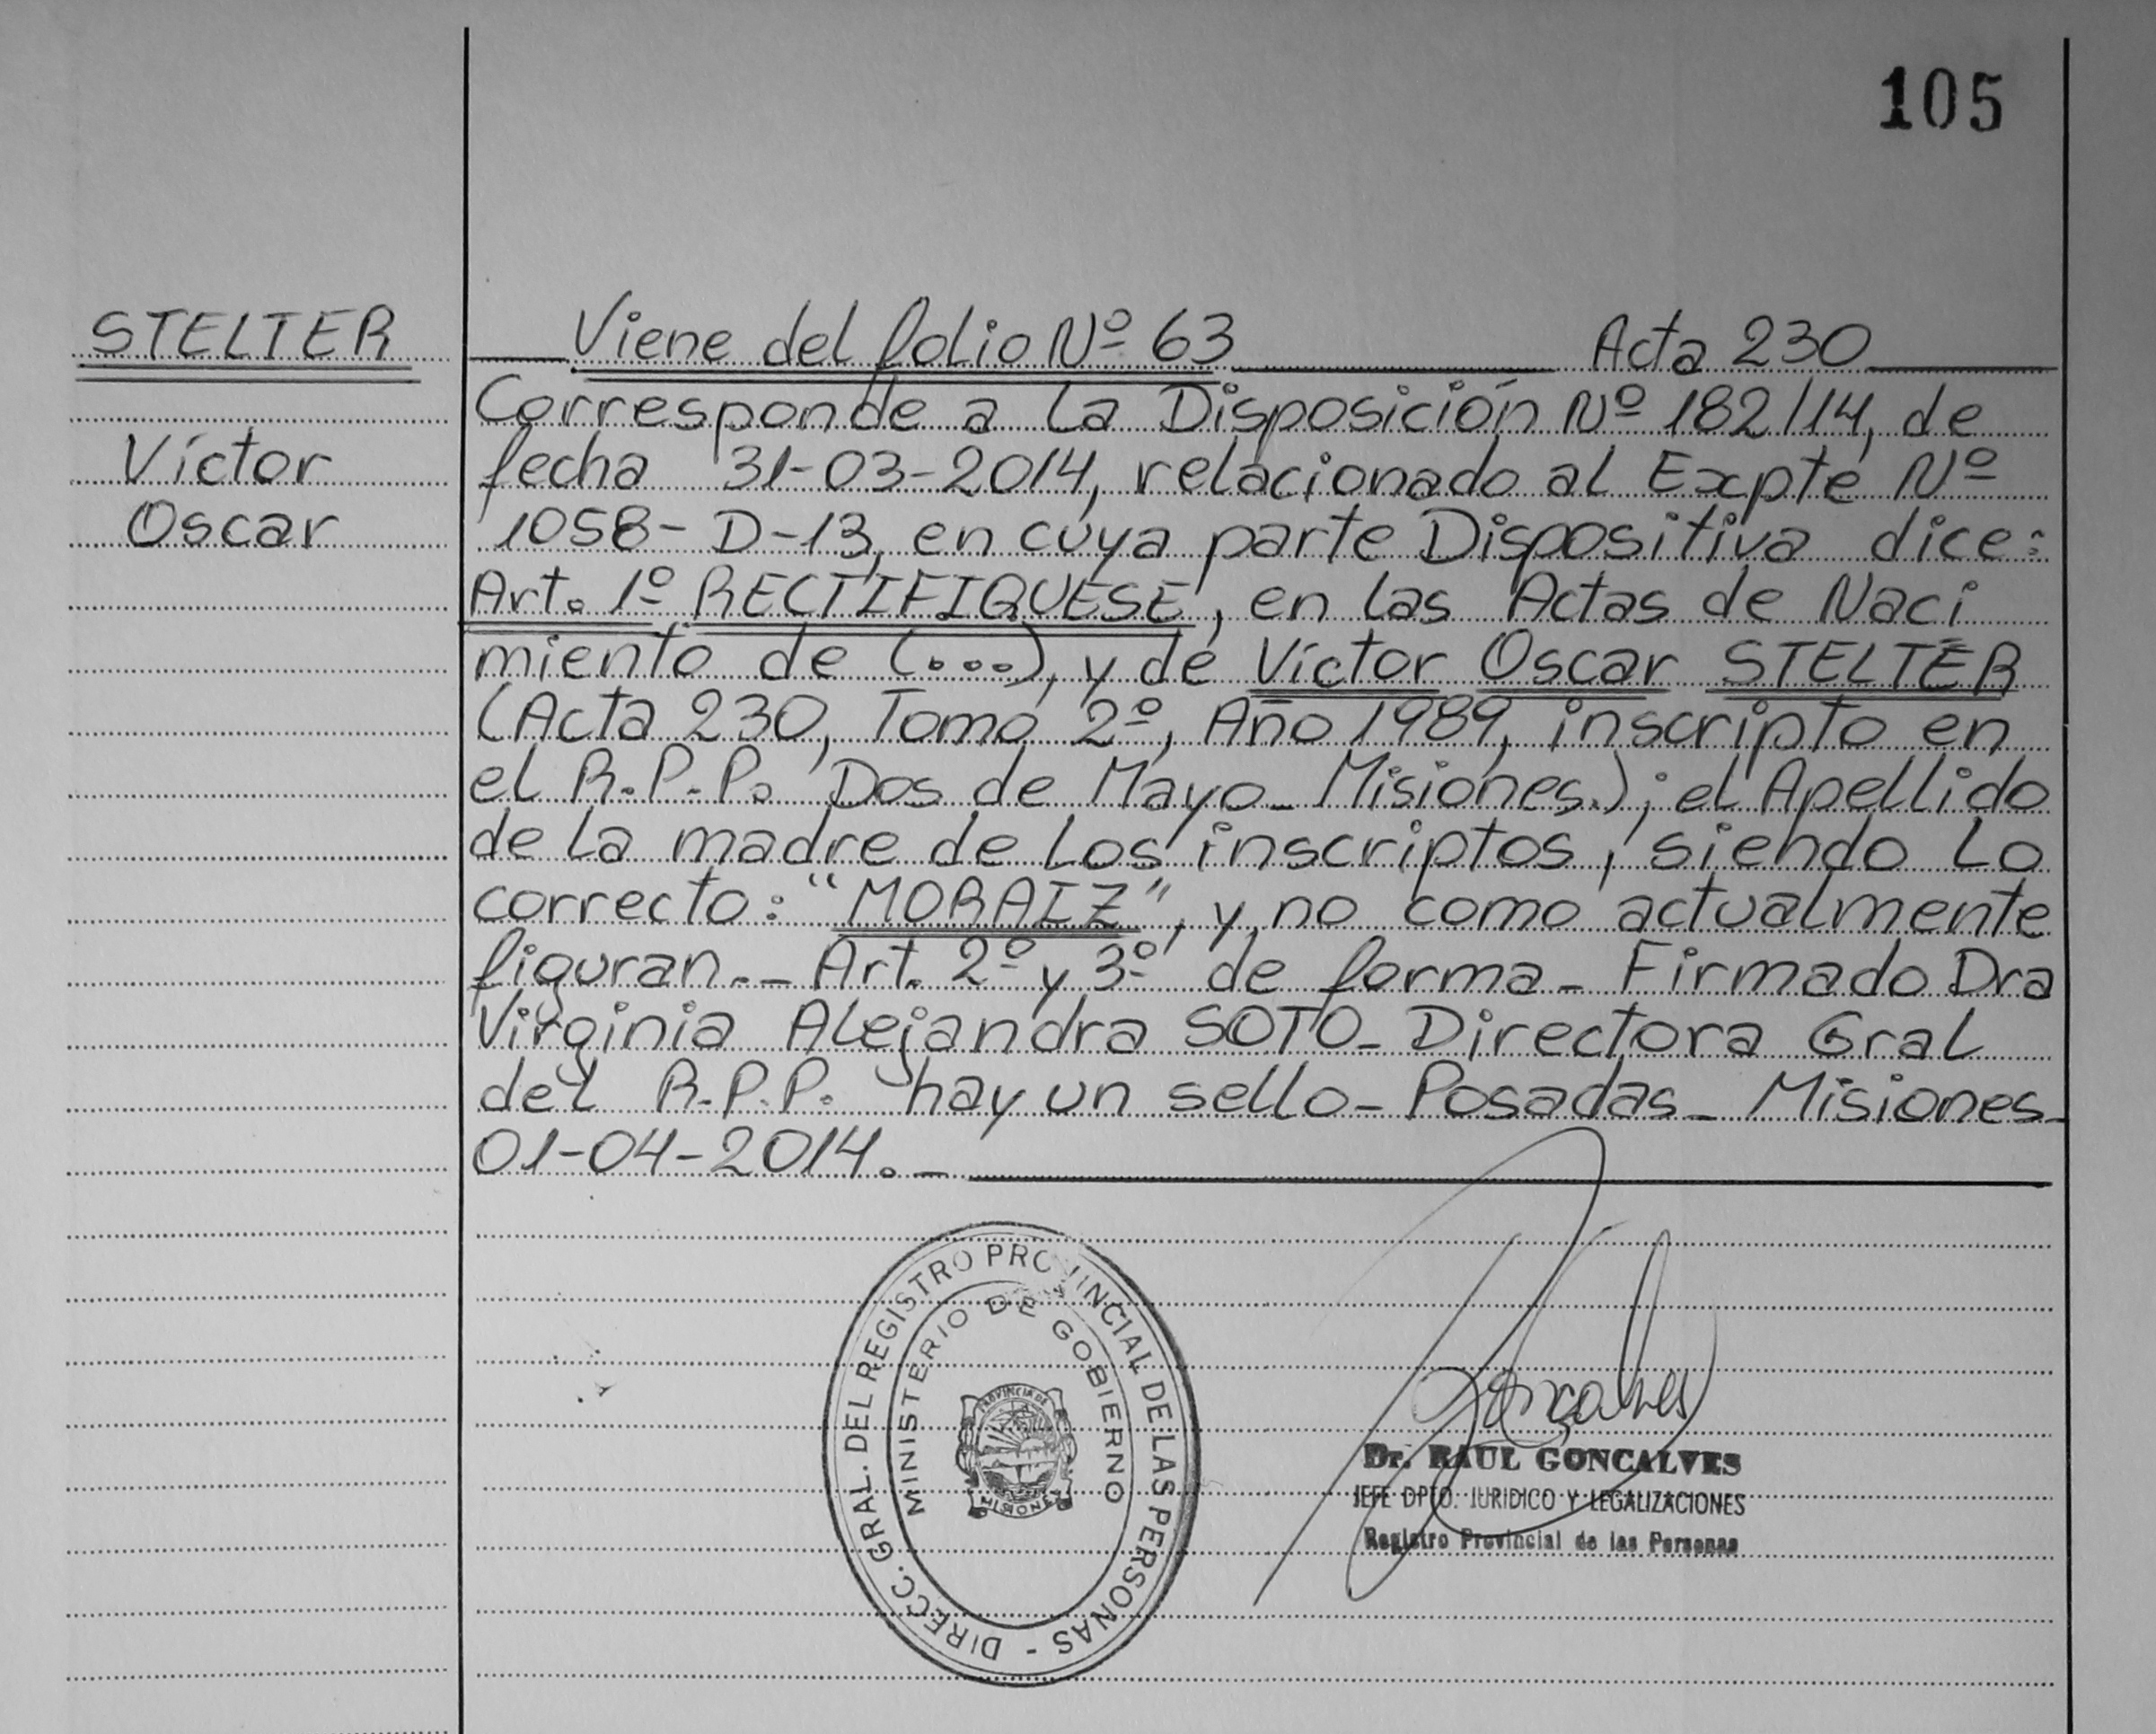 105
STELTER
Víctor
Oscar
Viene del folio Nº 63 Acta 230
Corresponde a la Disposición Nº 182/14, de
fecha 31-03-2014, relacionado al Expte Nº
1058-D-13, en cuya parte Dispositiva dice:
Art. 1º RECTIFIQUESE, en las Actas de Naci
miento de (...), y de Víctor Oscar STELTER
(Acta 230, Tomo 2º, Año 1989, inscripto en
el R.P.P. Dos de Mayo_ Misiones.); el Apellido
de la madre de los inscriptos, siendo lo
correcto: "MORAIZ", y no como actualmente
figuran._ Art. 2º y 3º de forma_ Firmado Dra
Virginia Alejandra SOTO_ Directora Gral
del R.P.P. hay un sello_ Posadas_ Misiones_
01-04-2014._
DIRECC. GRAL. DEL REGISTRO PROVINCIAL DE LAS PERSONAS -
MINISTERIO DE GOBIERNO
PROVINCIA DE
MISIONES
Goncalves
Dr. RAUL GONCALVES
JEFE DPTO. JURIDICO Y LEGALIZACIONES
Registro Provincial de las Personas